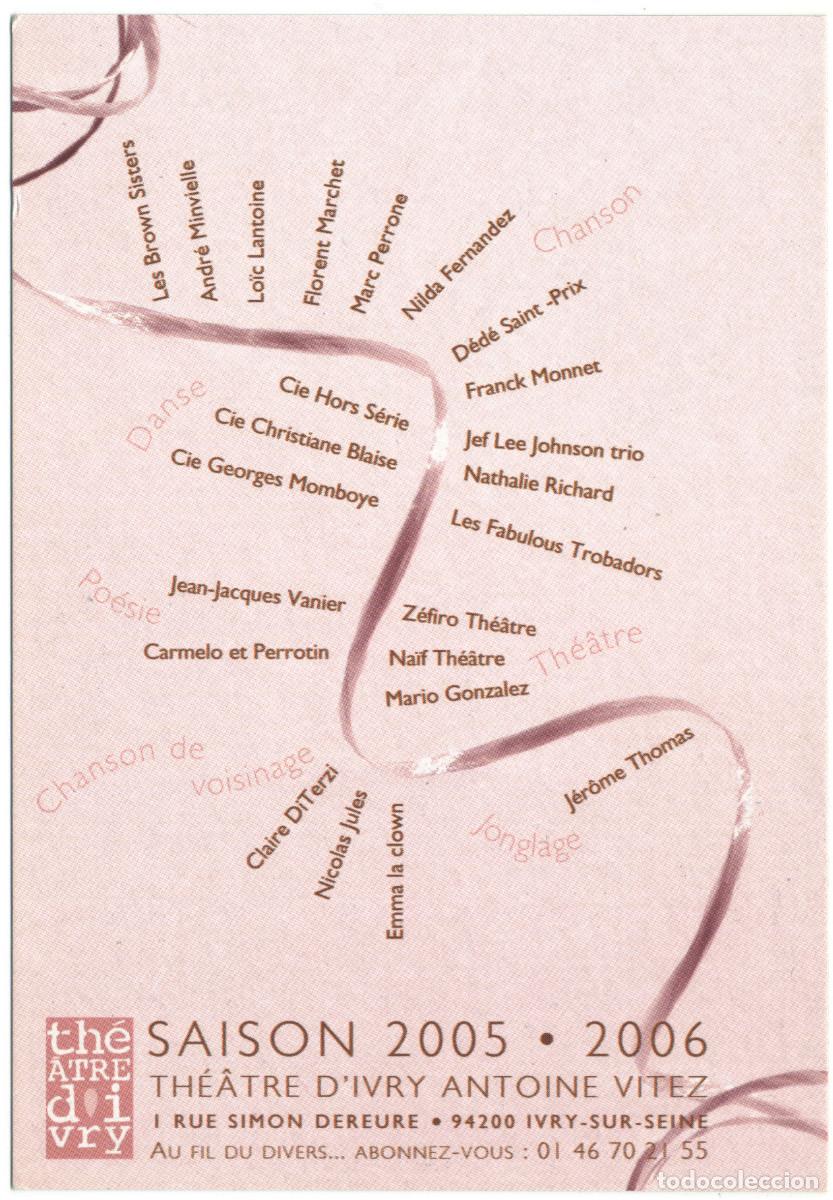 Les Brown Sisters
André Minvielle
Loïc Lantoine
Florent Marchet
Marc Perrone
Nilda Fernandez
Chanson
Dédé Saint -Prix
Franck Monnet
Jef Lee Johnson trio
Nathalie Richard
Les Fabulous Trobadors
Danse
Cie Hors Série
Cie Christiane Blaise
Cie Georges Momboye
Poésie
Jean-Jacques Vanier
Carmelo et Perrotin
Zéfiro Théâtre
Naïf Théâtre
Mario Gonzalez
Théâtre
Chanson de
voisinage
Claire DiTerzi
Nicolas Jules
Emma la clown
Jérôme Thomas
Jonglage
thé
ATRE
d'i
vry
SAISON 2005 • 2006
THÉÂTRE D'IVRY ANTOINE VITEZ
1 RUE SIMON DEREURE • 94200 IVRY-SUR-SEINE
AU FIL DU DIVERS... ABONNEZ-VOUS : 01 46 70 21 55
todocoleccion